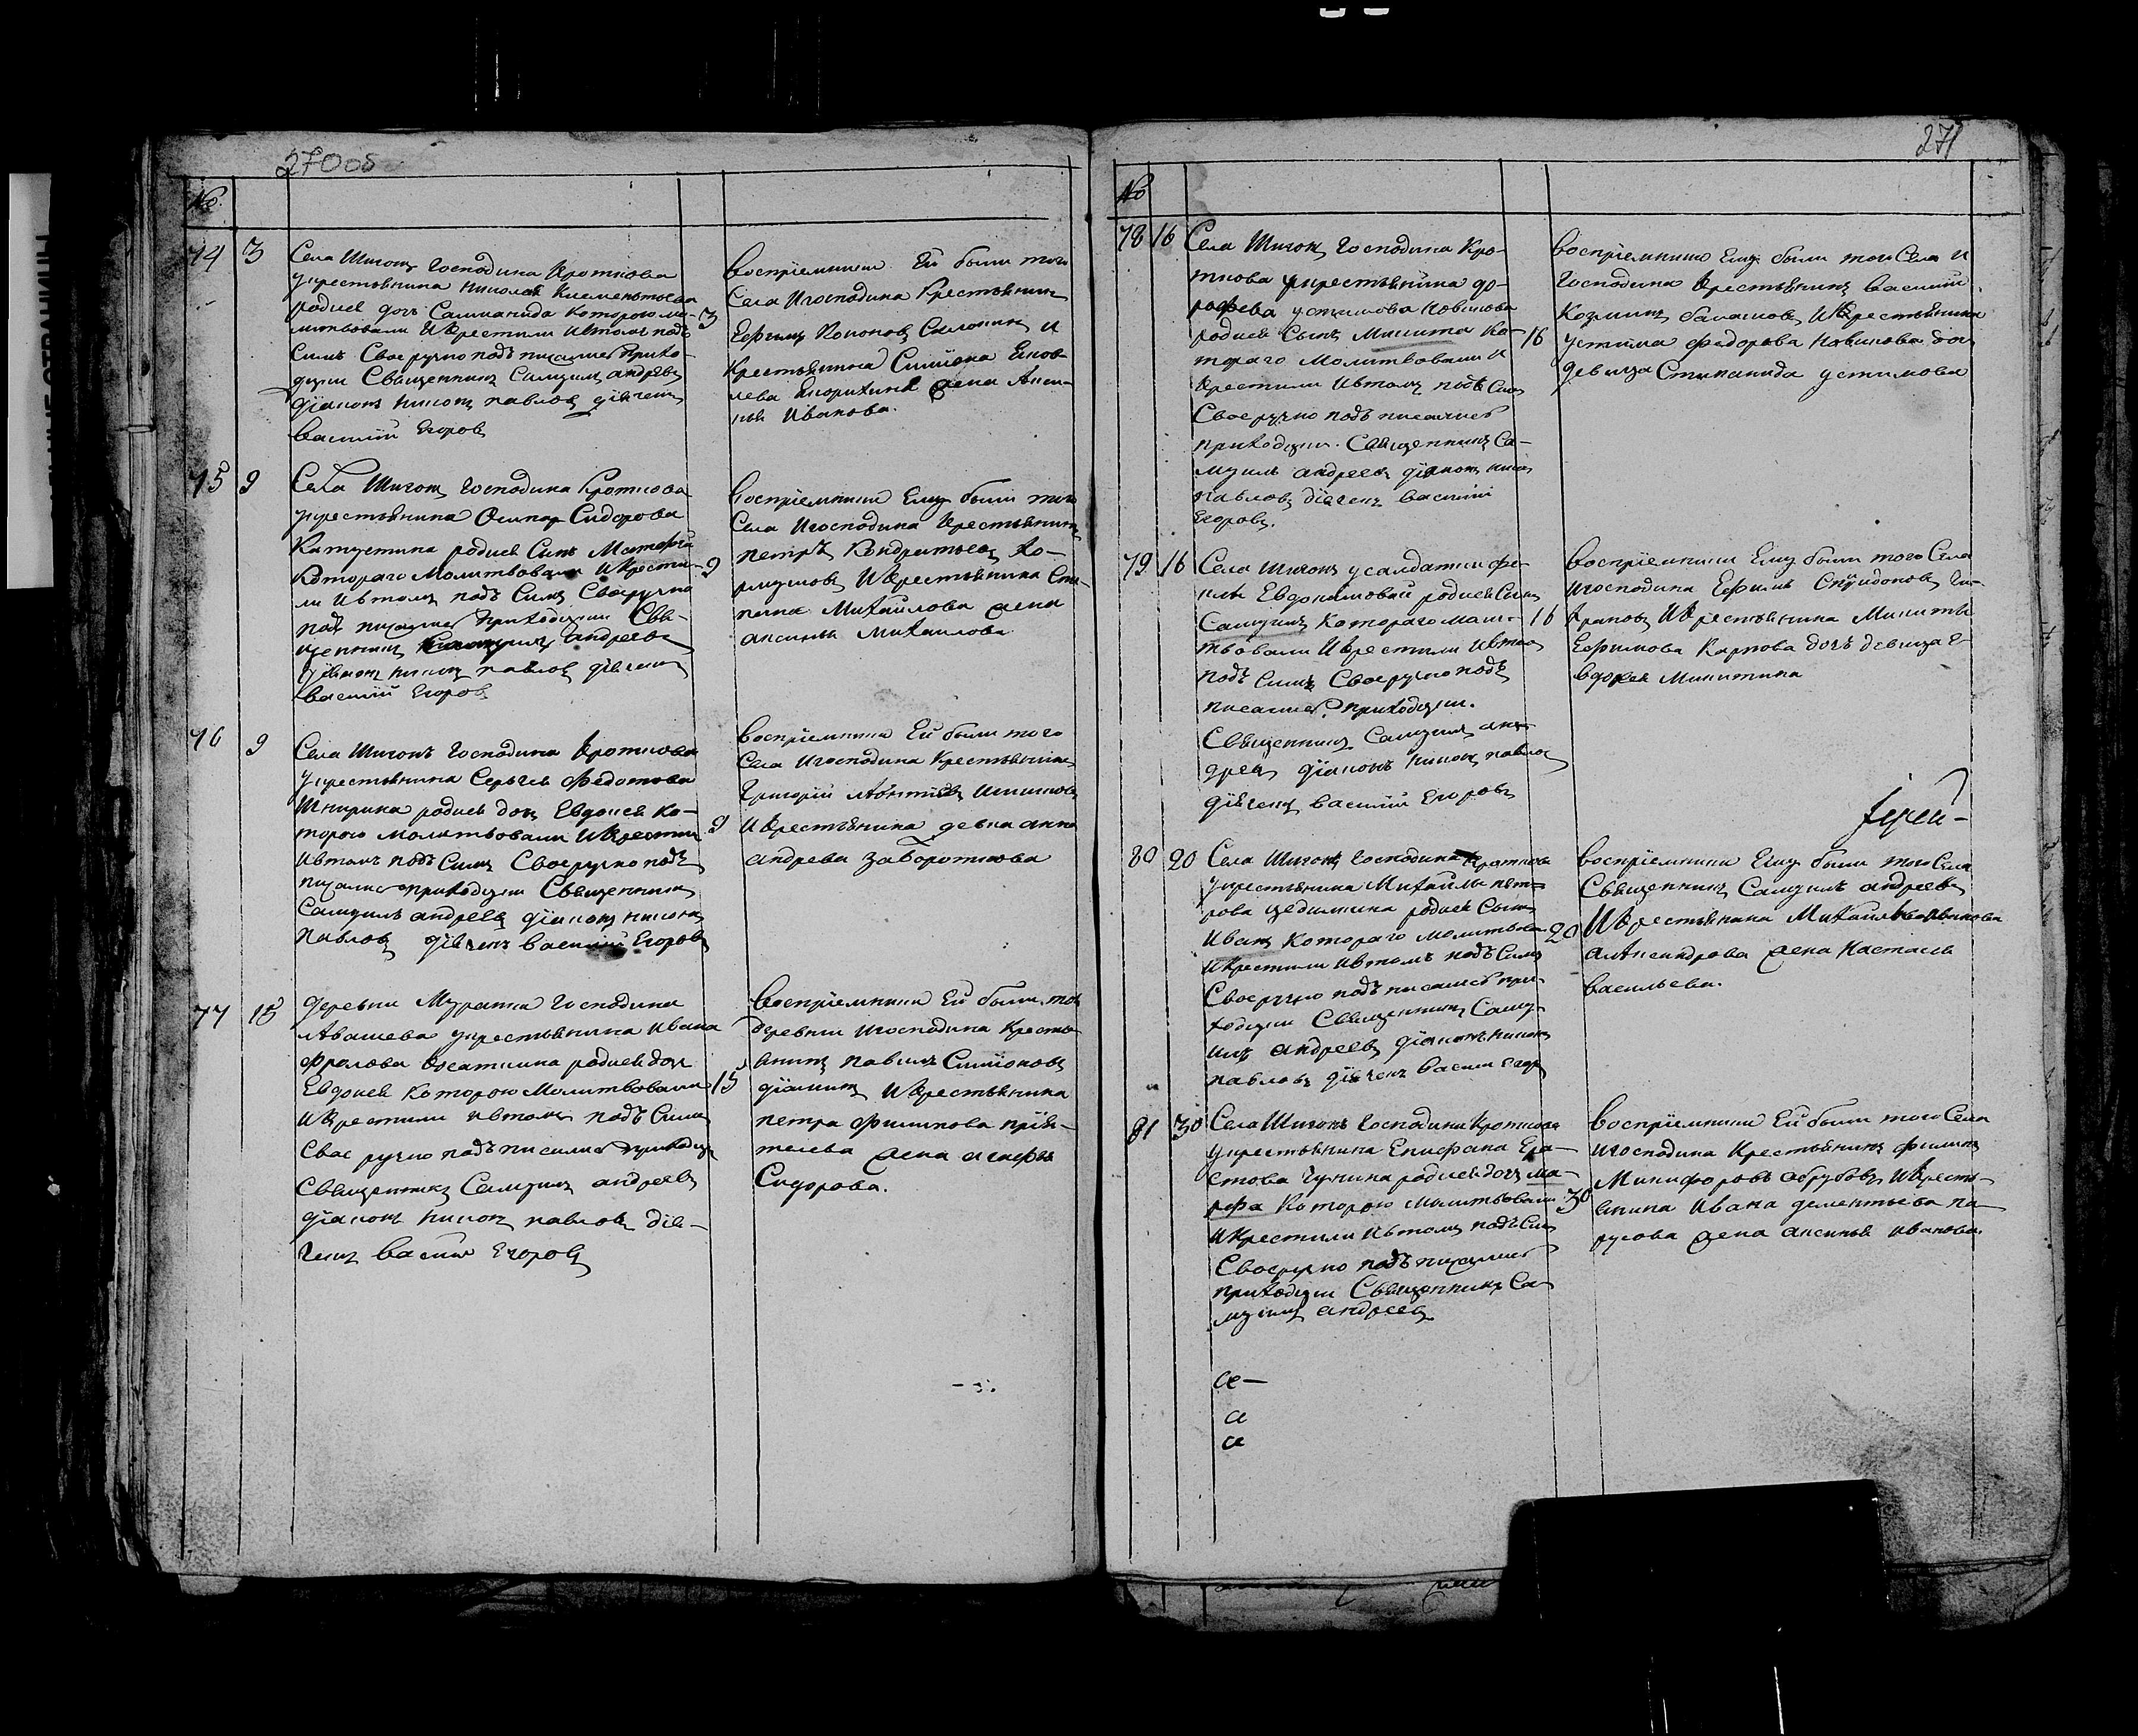 270об
№
74 3 Села Шигонъ Господина Кроткова
укрестьянина Николая Клементьева
родися дочь Саломанида которою мо-
литвовали Икрестили Ивтомъ подъ
Симъ Своеручно подъписались Прихо-
дцкии Священникъ Самуилъ андреевъ
діаконъ никонъ павловъ дьячекъ
Василий Егоровъ
3
Воспріемники Ей были того
Села Игосподина Крестьянинъ
Ефимъ Кононовъ и
Крестьянина Симиона Яков-
лева жена Акси-
нья Иванова.
75 9 Села Шигонъ Господина Кроткова
укрестьянина Осипа Сидорова
Капустина родися Сынъ Матофей
Котораго Молитвовали Икрести-
ли Ивтомъ подъ Симъ Своеручно
подъ писались Приходцкии Свя-
щенникъ Самуилъ андреевъ
діаконъ никонъ павловъ дьячекъ
Василий Егоровъ
9
Воспріемники Ему были того
Села Игосподина Крестьянинъ
петръ Кондратьевъ Хо-
рмуловъ Икрестьянина Сте-
пана Михайлова жена
аксинья Михаилова
76 9 Села Шигонъ Господина Кроткова
укрестьянина Сергея Федотова
Шкирина родися дочь Евдокея ко-
торою молитвовали Икрестили
Ивтомъ подъ Симъ Своеручно подъ
писались приходцкии Священникъ
Самуилъ андреевъ діаконъ никонъ
павловъ дьячекъ василий Егоровъ
9
воспріемники Ей были того
Села Игосподина Крестьянинъ
Григорій Шишковъ
Икрестьянина девка анна
андрева Заворотнова
77 15 деревни Муранки Господина
Авашева укрестьянина Ивана
Фролова Косаткина родися дочь
Евдокея Которою Молитвовали
Икрестили Ивтомъ подъ Симъ
Свое ручно подъписались приходцки
Священникъ Самуилъ андреевъ
діаконъ никонъ павловъ дья-
чекъ василия Егоровъ
15
Воспріемники Ей были той
деревни Игосподина Кресть-
янинъ павилъ Симионовъ
Икрестьянина
петра Филипова прія-
телева жена агафья
Сидорова.
271
№
78 16 Села Шигонъ Господина Кро-
ткова укрестьянина до-
рофева устинова Новикова
родися Сынъ Микита Ко-
тораго Молитвовали И
Крестили Ивтомъ подъ Симъ
Своеручно подъписались
приходцкии. Священникъ Са-
муилъ андреевъ діаконъ никонъ
павловъ дьячекъ василий
Егоровъ.
16
воспріемники Ему были того Села И
Господина Крестьянинъ василий
Козминъ балашовъ, Икрестьянина
устима Федорова Новикова дочь
девица Стипанида устимова
79 16 Села Шигонъ усалдатки Фе-
клы Евдокимовай родися Сынъ
Самуилъ Котораго моли-
твовали Икрестили Ивтомъ
подъ Симъ Своеручно подъ
писались приходцкии.
Священникъ Самуилъ ан-
дреевъ діаконъ никонъ павловъ
дьячекъ василий Егоровъ
16
Воспріемники Ему были того Села
Игосподина Ефимъ Спиридоновъ
Икрестьянина Микиты
Ефимова Карпова дочь девица Е-
вдокея Микитина
Іерей-
80 20 Села Шигонъ Господина Кроткова
укрестьянина Михаилы пет-
рова родися Сынъ
Иванъ Котораго молитвовали
Икрестили Ивтомъ подъ Симъ
Своеручно подъписались при-
ходцкии Священникъ Саму-
илъ андреевъ діаконъ никонъ
павловъ дьячекъ васили Егоро
20
Воспріемники Ему были того Села
Священникъ Самуилъ андреевъ
Икрестьянина Михаилы Иванова
алКсандрова жена Настасья
васильева.
81 30 Села Шигонъ Господина Кроткова
укрестьянина Епифана Ера-
стова Чункина родися дочь ма-
рфа Которою молитвовали
Икрестили Ивтомъ подъ Симъ
Своеручно подъписались
приходцкии Священникъ Са-
муилъ андреевъ
30
Воспріемники Ей были того Села
Игосподина Крестьянинъ филипъ
Микифоровъ абрубовъ Икресть-
янина Ивана дементьева па-
русова жена аксинья иванова